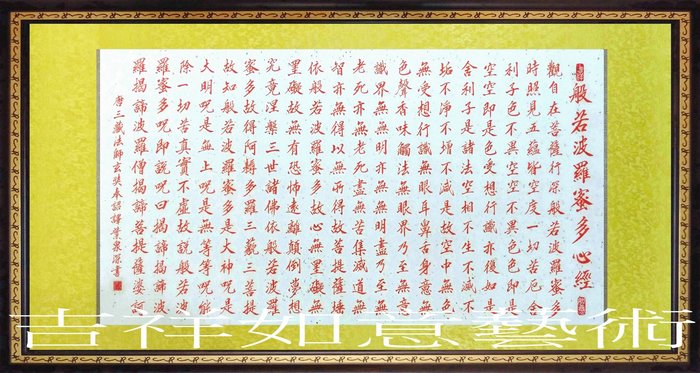 般若波羅蜜多心經
觀自在菩薩行深般若波羅蜜多
時照見五蘊皆空度一切苦厄舍
利子色不異空空不異色色即是
空空即是色受想行識亦復如是
舍利子是諸法空相不生不滅不
垢不淨不增不減是故空中無色
無受想行識無眼耳鼻舌身意無
色聲香味觸法無眼界乃至無意
識界無無明亦無無明盡乃至無
老死亦無老死盡無苦集滅道無
智亦無得以無所得故菩提薩埵
依般若波羅蜜多故心無罣礙無
罣礙故無有恐怖遠離顛倒夢想
究竟涅槃三世諸佛依般若波羅
蜜多故得阿耨多羅三藐三菩提
故知般若波羅蜜多是大神呪是
大明呪是無上呪是無等等呪能
除一切苦真實不虛故說般若波
羅蜜多呪即說呪曰揭諦揭諦波
羅揭諦波羅僧揭諦菩提薩婆訶
唐三藏法師玄奘奉詔譯葉泉深書
吉祥如意藝術